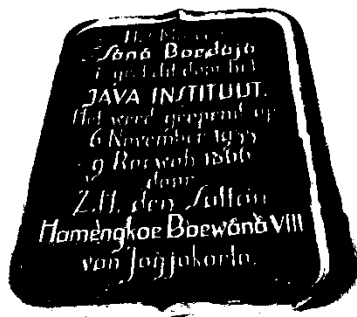 Het Museum
Sånå Boedåjå
is gesticht door het
JAVA INSTITUUT.
Het werd geopend op
6 November 1935
9 Roewah 1866
door
Z.H. den Sultan
Hamengkoe Boewånå VIII
van Jogjakarta.